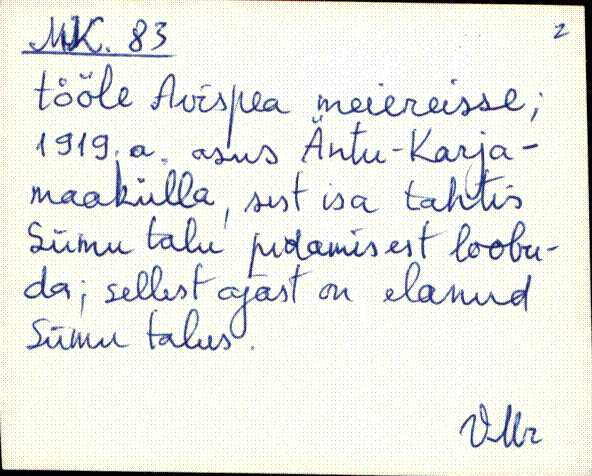 MK. 83
2
tööle Avispea meiereisse;
1919. a. asus Äntu-Karja-
maakülla, sest isa tahtis
Siimu talu pidamisest loobu-
da; sellest ajast on elanud
Siimu talus.